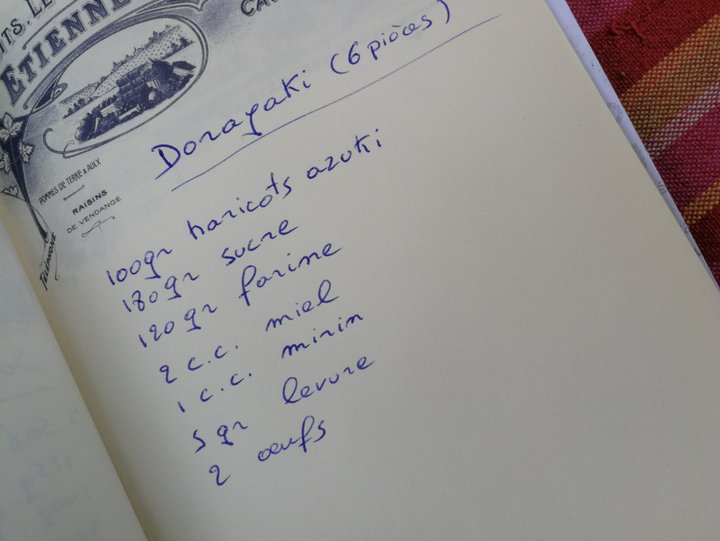 ITS, LE
ETIENNE
CA
POMMES DE TERRE & AULX
RAISINS
DE VENDANGE
Dorayaki (6 pièces)
100gr haricots azuki
180gr sucre
120gr farine
2 c.c. miel
1 c.c. mirin
5 gr levure
2 oeufs